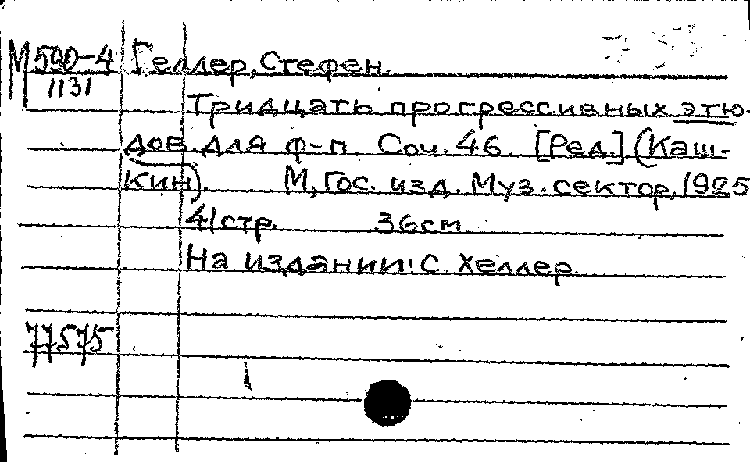 М 590-4 Геллер, Стефен.
1131
Тридцать прогрессивных этю-
дов для ф-п. Соч. 46. [Ред.] (Каш-
кин). М, Гос. изд. Муз. сектор, 1925
41 стр. 36 см
На издании: С. Хеллер.
77575